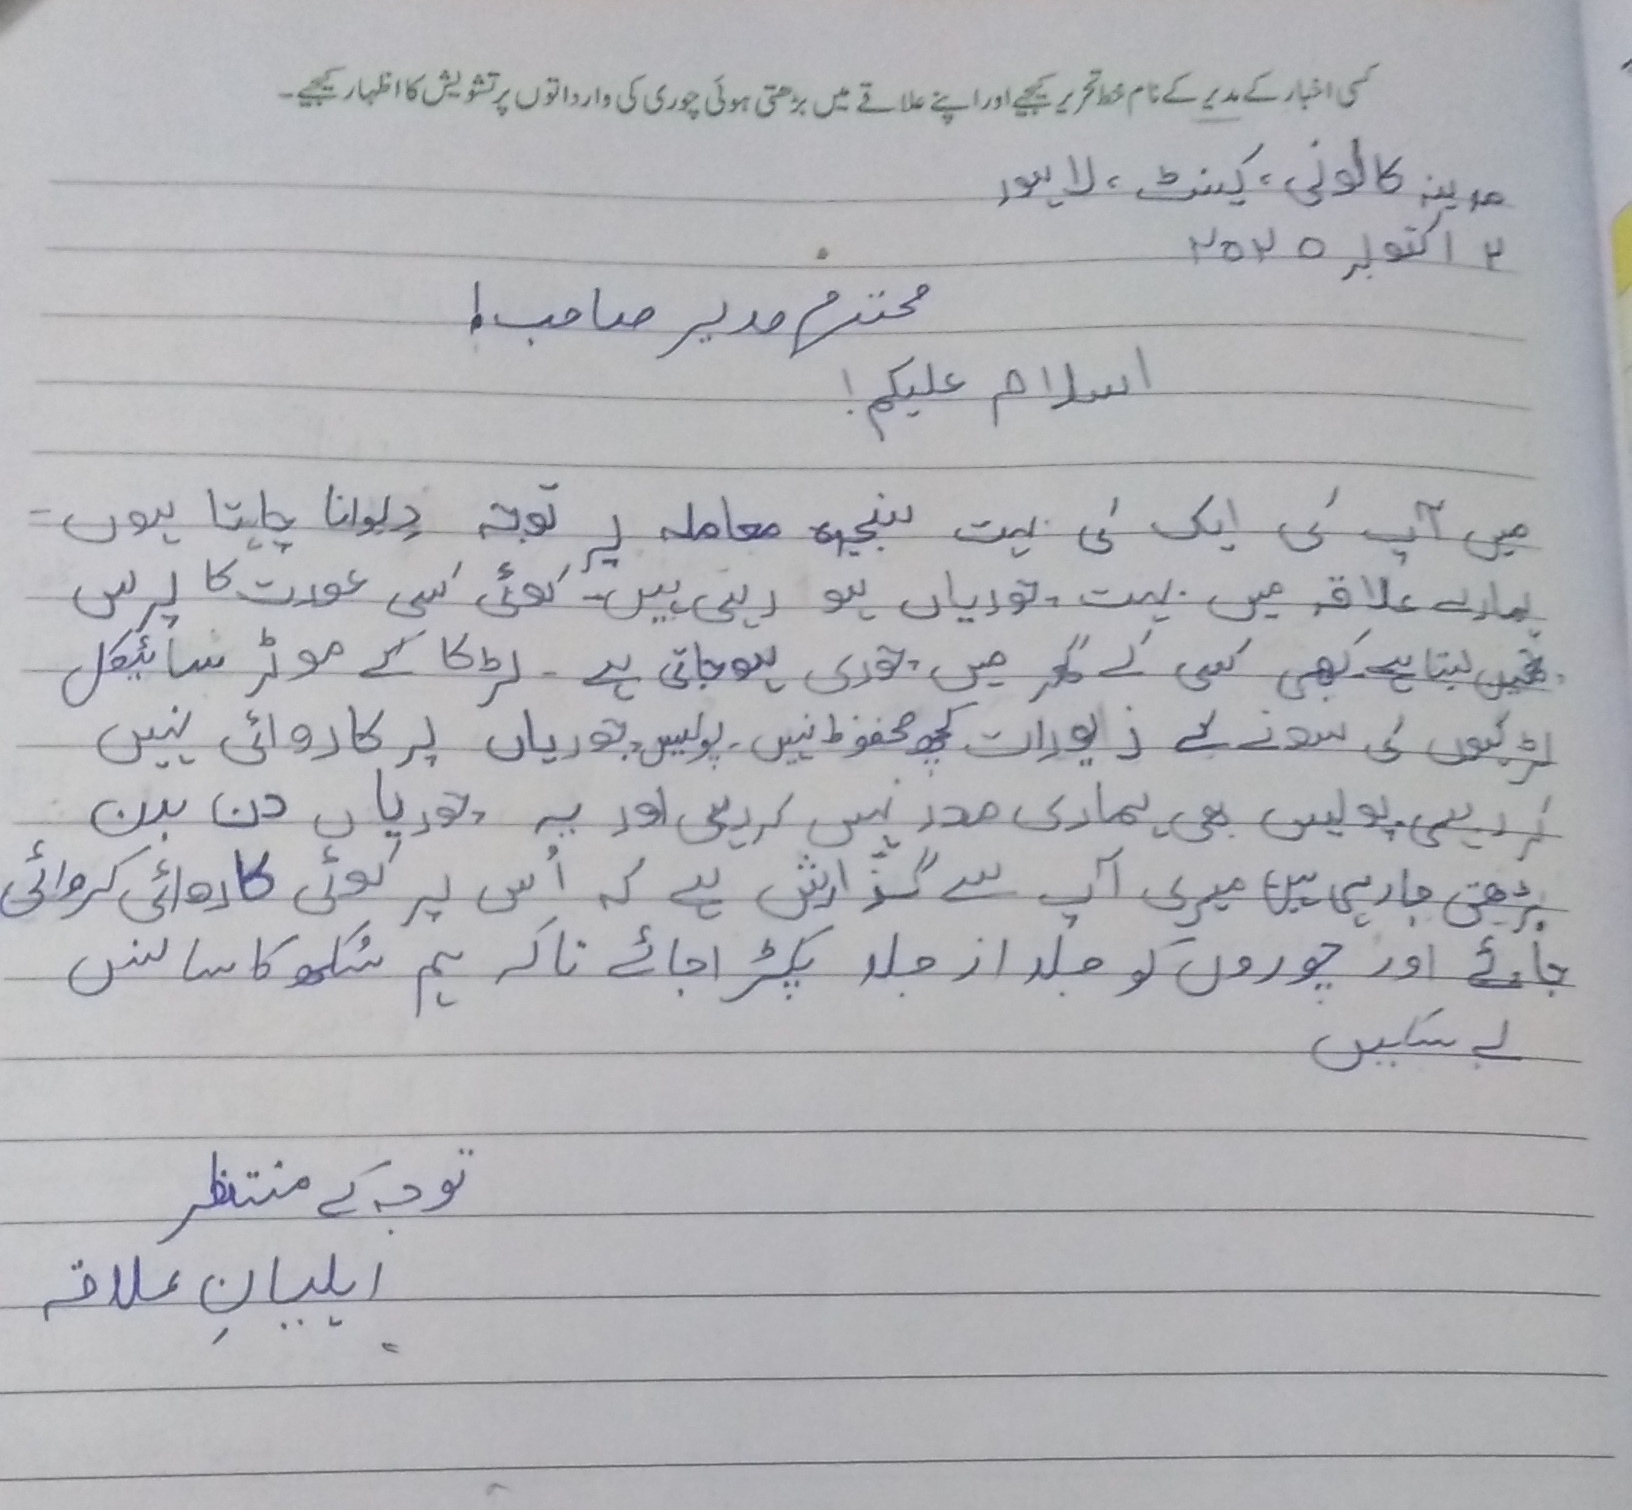 کسی اخبار کے مدیر کے نام خط تحریر کیجیے اور اپنے علاقے میں بڑھتی ہوئی چوری کی وارداتوں پر تشویش کا اظہار کیجیے۔
مدینہ کالونی، کینٹ، لاہور
۲ اکتوبر ۲۰۲۵
محترم مدیر صاحب!
اسلام علیکم!
میں آپ کی ایک کی بہت سنجیدہ معاملہ پر توجہ دِلوانا چاہتا ہوں۔
ہمارے علاقہ میں بہت چوریاں ہو رہی ہیں۔ کوئی کسی عورت کا پرس
چھین لیتا ہے کبھی کسی کے گھر میں چوری ہو جاتی ہے۔ لڑکا کے موٹر سائیکل
لڑکیوں کی سونے کے زیورات کچھ محفوظ نہیں۔ پولیس چوریاں پر کاروائی نہیں
کر رہی۔ پولیس بھی ہماری مدد نہیں کر رہی اور یہ چوریاں دن بدن
بڑھتی جا رہی ہیں میری آپ سے گزارش ہے کہ اُس پر کوئی کاروائی کروائی
جائے اور چوروں کو جلد از جلد پکڑا جائے تاکہ ہم سُکھ کا سانس
لے سکیں
توجہ کے منتظر
اہلیانِ علاقہ